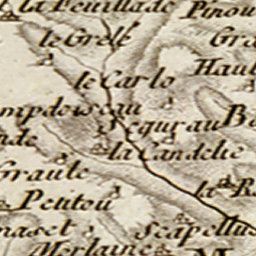 la Feuillade
Pinou
le Grelé
Gra
Haul
le Carlo
mpdoiseau
Segurau
Ba
la Candelie
Graule
la Ra
Petitou
naset
Scapellu
Merlaine
M